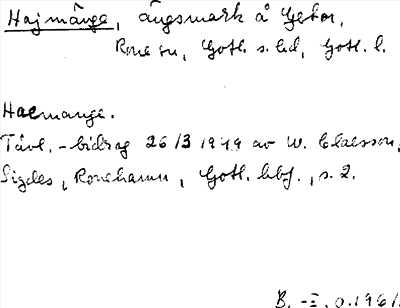 Hajmänge, ängsmark å Getor,
Rone sn, Gotl. s. hd, Gotl. l.
Haemange.
Tävl.-bidrag 26/3 1949 av W. Claesson,
Sigdes, Ronehamn, Gotl. , s. 2.
B. 1961.